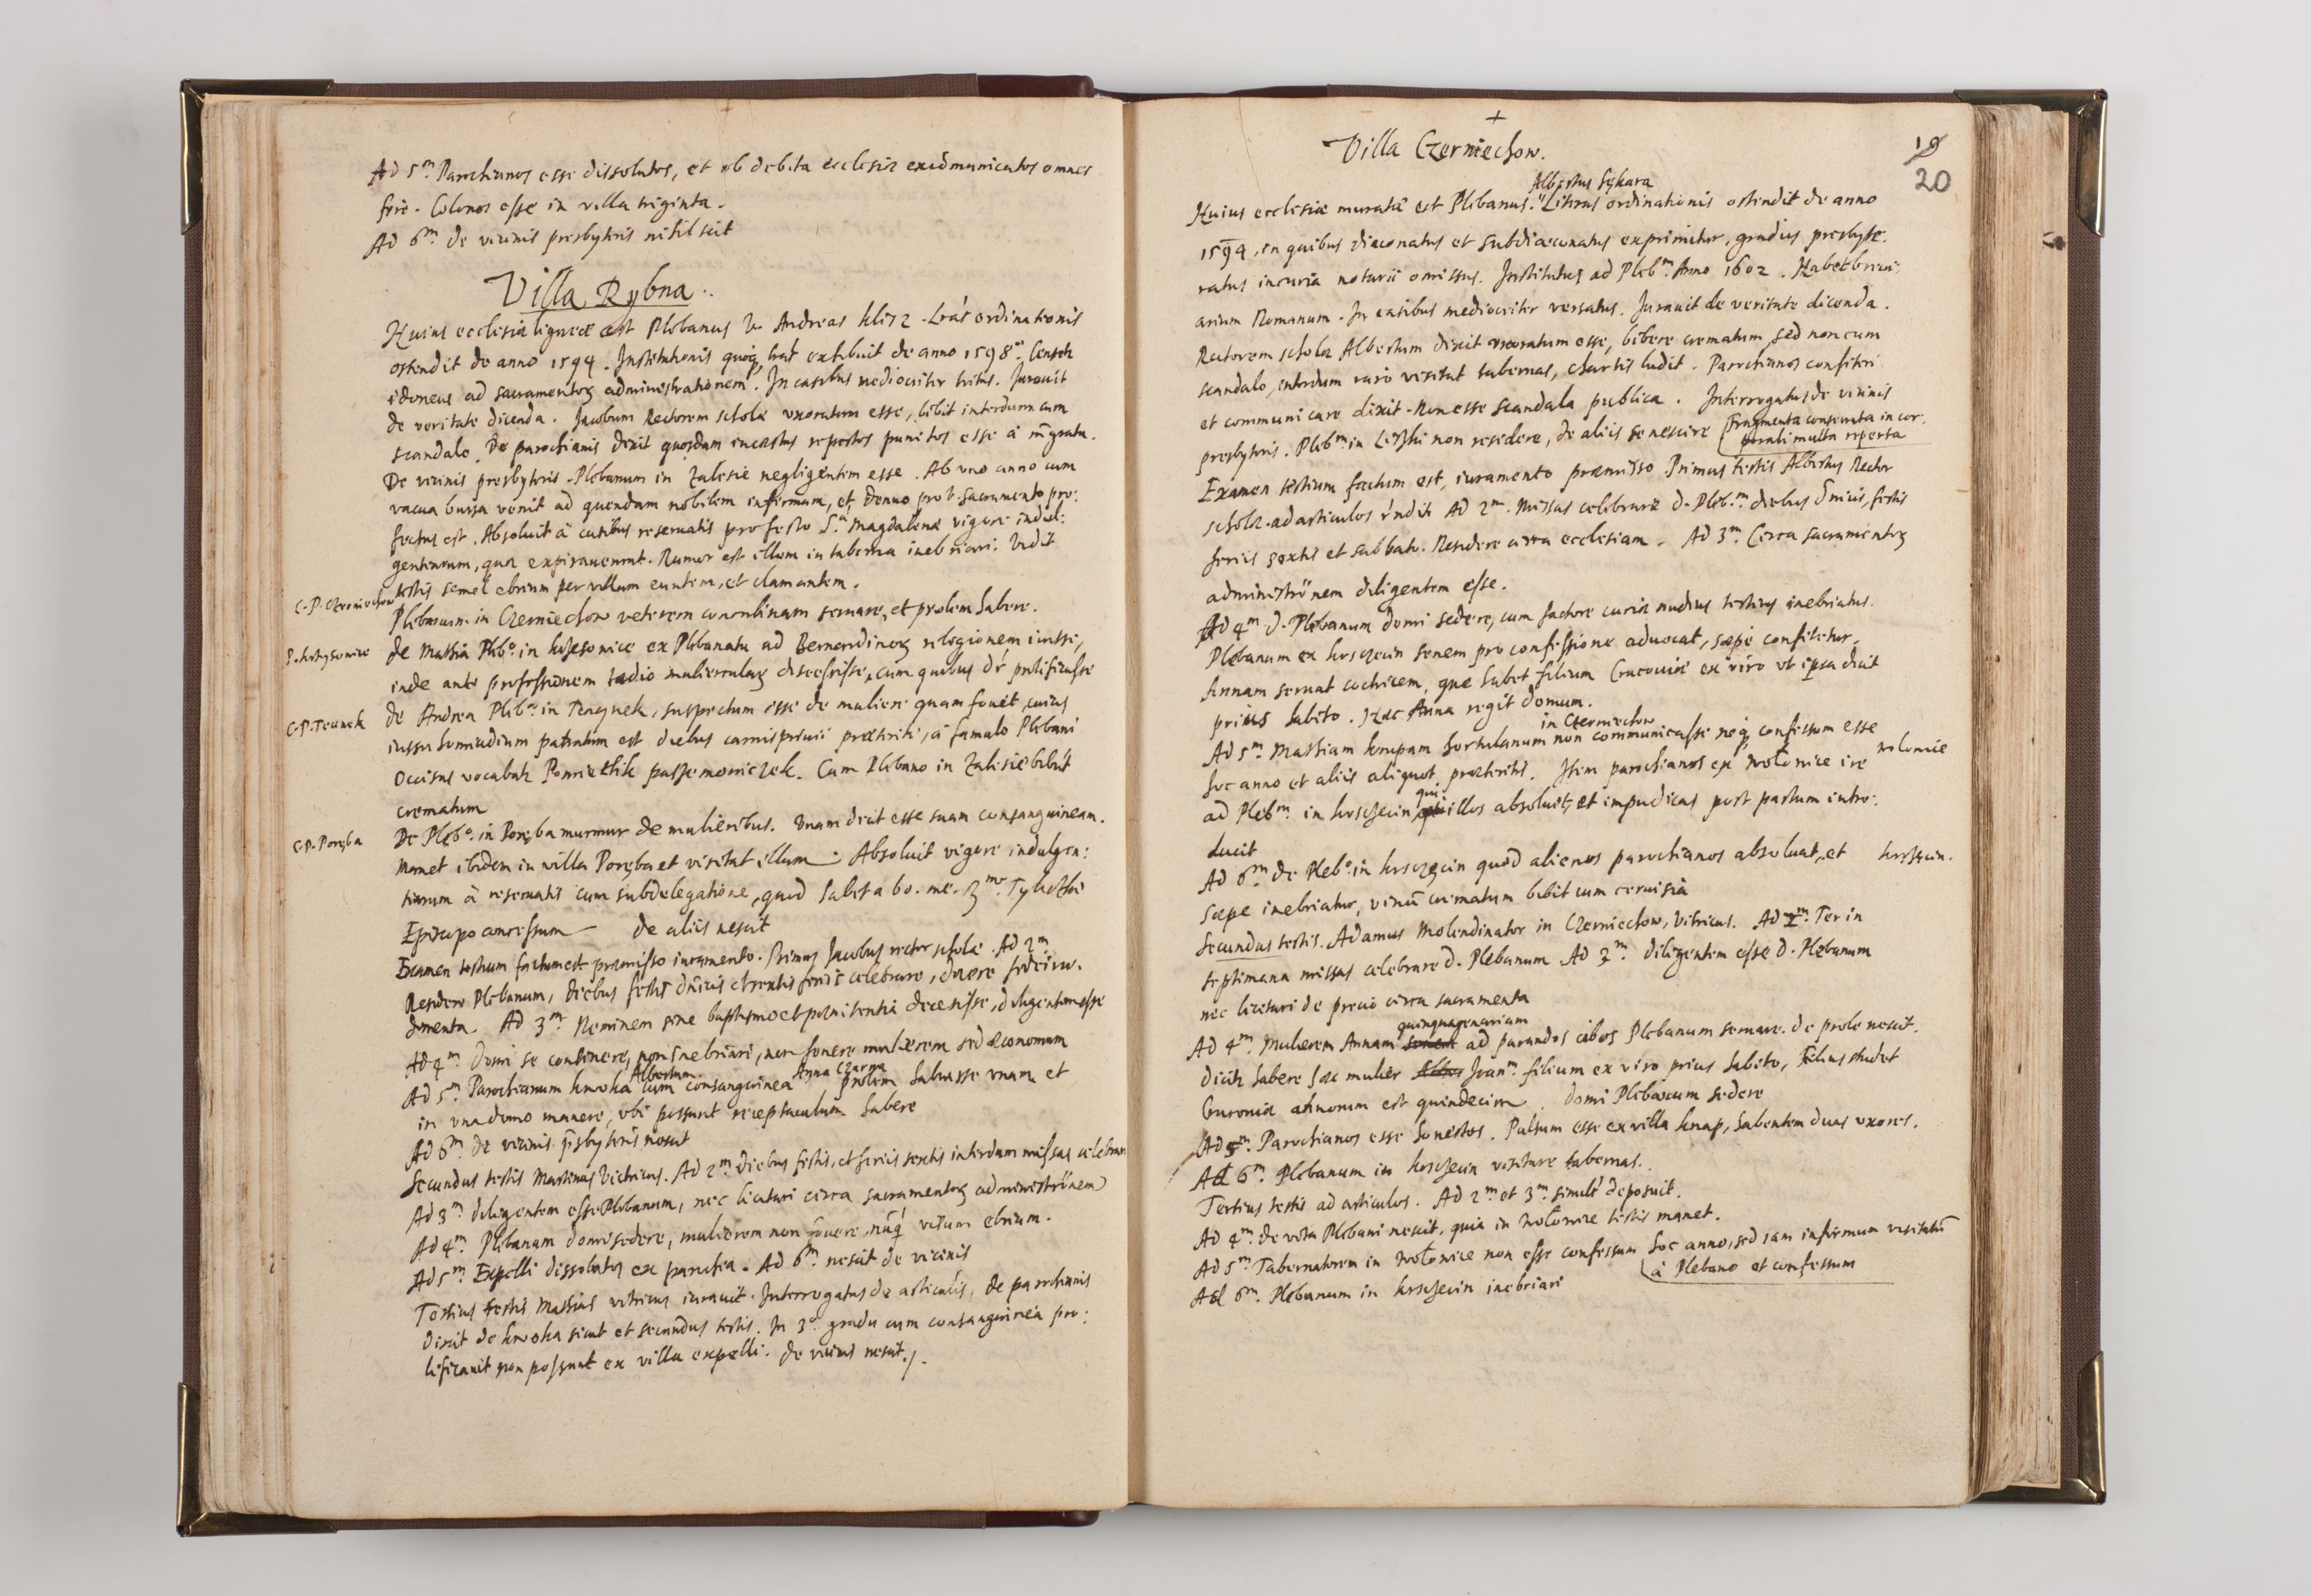 Ad 5m. Parochianos esse dissolutos, et ob debita ecclesiæ excōmunicatos omnes
fere. Colonos esse in villa triginta.
Ad 6m. de vicinis presbyteris nihil scit
Villa Rybna.
Huius ecclesiæ ligneæ est Plebanus V. Andreas Klisz. Lrās ordinationis
ostendit de anno 1594. Institutionis quoq lrās exhibuit de anno 1598o. Censetr
idoneus ad sacramentoꝝ administrationem. In casibus mediocriter tritus. Jurauit
de veritate dicenda. Jacobum Rectorem scholæ vxoratum esse, bibit interdum cum
scandalo. De parochianis dixit quosdam incestus repertos punitos esse à mgratu.
De vicinis presbyteris. Plebanum in Zalesie negligentem esse. Ab vno anno cum
vacua bursa venit ad quendam nobilem infirmum, et denuo pro S. Sacramento pro:
fectus est. Absoluit à casibus reseruatis pro festo S.æ Magdalenæ vigore indul:
gentiarum, quæ expirauerunt. Rumor est illum in taberna inebriari. Vidit
testis semel ebrium per villam euntem, et clamantem.
C.P. Czerniechow
Plebanum in Czerniechow veterem concubinam seruare, et prolem habere.
P. Krzysonice
de Mathia Plebo. in Krzesonice ex Plebanatu ad Bernardinoꝝ religionem iuisse,
inde ante professionem tædio muliercularꝝ discessisse, cum quibus dr prolificasse
C.P. Teunek
de Andrea Plebo. in Tæynek, suspectum esse de muliere quam fouet, cuius
iussu homicidium patratum est diebus carnispriuii præteriti, à famulo Plebani
Occisus vocabatr Pomiethik passemoniczek. Cum Plebano in Zalesie bibit
crematum
C.P. Poręba
De Plebo. in Poręba murmur de mulieribus. Vnam dicit esse suam consanguineam.
Manet ibidem in villa Poręba et visitat illum. Absoluit vigore indulgen:
tiarum à reseruatis cum subdelegatione, quod habet a bo. me. Rmo Tylicki
Episcopo concessum – de aliis nescit
Examen testium factum est præmisso iuramento. Primus Jacobus rector scholæ. Ad 2m
Residere Plebanum, diebus festis dnicis et sextis feriis celebrare,
Ad 3m. Neminem sine baptismo et pœnitentia decessisse, diligentem esse
Ad 4m Domi se continere, non inebriari, non fouere mulierem sed œconomum
Ad 5m Parochianum Kwoka Albertum cum consanguinea Anna Czarna prolem habuisse vnam et
in vna domo manere, vbi possunt receptaculum habere
Ad 6m de vicinis p̄sbyteris nescit
Secundus testis Martinus Victricus. Ad 2m. diebus festis, et feriis sextis interdum missas celebrare
Ad 3m. diligentem esse Plebanum, nec licitari circa sacramentoꝝ administrōnem
Ad 4m. Plebanum domi sedere, mulierem non fouere, nūq visum ebrium.
Ad 5m. Expelli dissolutos ex parochia. Ad 6m. nescit de vicinis
Tertius testis Mathias vitricus iurauit. Interrogatus de articulis, de parochianis
dixit de Kwoka sicut et secundus testis. In 3o. gradu cum consanguinea pro:
lificauit non possunt ex villa expelli. de vicinis nescit./.
+
19
20
Villa Czerniechow.
Albertus Sykara
Huius ecclesiæ muratæ est Plebanus. "Literas ordinationis ostendit de anno
1594, in quibus diaconatus et subdiaconatus exprimitur, gradus presbyte:
ratus incuria notarii omissus. Institutus ad Plebm. Anno 1602. Habet breui:
arium Romanum. In casibus mediocriter versatus. Jurauit de veritate dicenda.
Rectorem scholæ Albertum dixit vxoratum esse, bibere crematum, sed non cum
scandalo, interdum raro visitat tabernas, chartis ludit. Parochianos confiteri
et communicare dixit. Non esse scandala publica. Interrogatus de vicinis
presbyteris. Plebm. in Liszki non residere, de aliis se nescire (fragmenta conseruata in cor:
porali multa reperta
Examen testium factum est, iuramento præmisso Primus testis Albertus Rector
scholæ ad articulos rndit Ad 2m. Missas celebrare d. Plebm. diebus dnicis, festis
feriis sextis et sabbato. Residere circa ecclesiam. Ad 3m. Circa sacramentoꝝ
administrōnem diligentem esse.
Ad 4m. d. Plebanum domi sedere, cum factore curiæ nudius tertius inebriatus.
Plebanum ex Krzczęcin senem pro confessione aduocat, sæpe confitetur.
Annam seruat cochicem, quæ habet filium Cracouiæ ex viro vt ipsa dicit
prius habito. Hæc Anna regit domum.
in Czerniechow
Ad 5m. Mathiam Krupam hortulanum non communicasse neq confessum esse
hoc anno et aliis aliquot præteritis. Item parochianos ex Wołowice ire
Wolowice
ad Plebm. in Krzczęcin qui illos absoluit, et impudicas post partum intro:
ducit
Ad 6m. de Plebo. in Krzczęcin quod alienos parochianos absoluat, et
Krzczęcin.
sæpe inebriatur, vinū crematum bibit cum ceruisia
Secundus testis. Adamus Molendinator in Czerniechow, Vitricus. Ad 2m. Ter in
septimana missas celebrare d. Plebanum. Ad 3m. diligentem esse d. Plebanum
nec licitari de precio circa sacramenta
Ad 4m. Mulierem Annam quinquagenariam ad parandos cibos Plebanum seruare. de prole nescit.
dicitr habere hæc mulier Joanm. filium ex viro prius habito, filius studet
Cracouiæ annorum est quindecim. domi Plebanum sedere
Ad 5m. Parochianos esse honestos. Pulsum esse ex villa Knap, habentem duas vxores.
Ad 6m. Plebanum in Krzczęcin visitare tabernas.
Tertius testis ad articulos. Ad 2m. et 3m. similr deposuit.
Ad 4m. de vita Plebani nescit, quia in Wołowice testis manet.
Ad 5m. Tabernatorem in Wołowice non esse confessum hoc anno, sed iam infirmum visitatū
à Plebano et confessum
Ad 6m. Plebanum in Krzczęcin inebriari